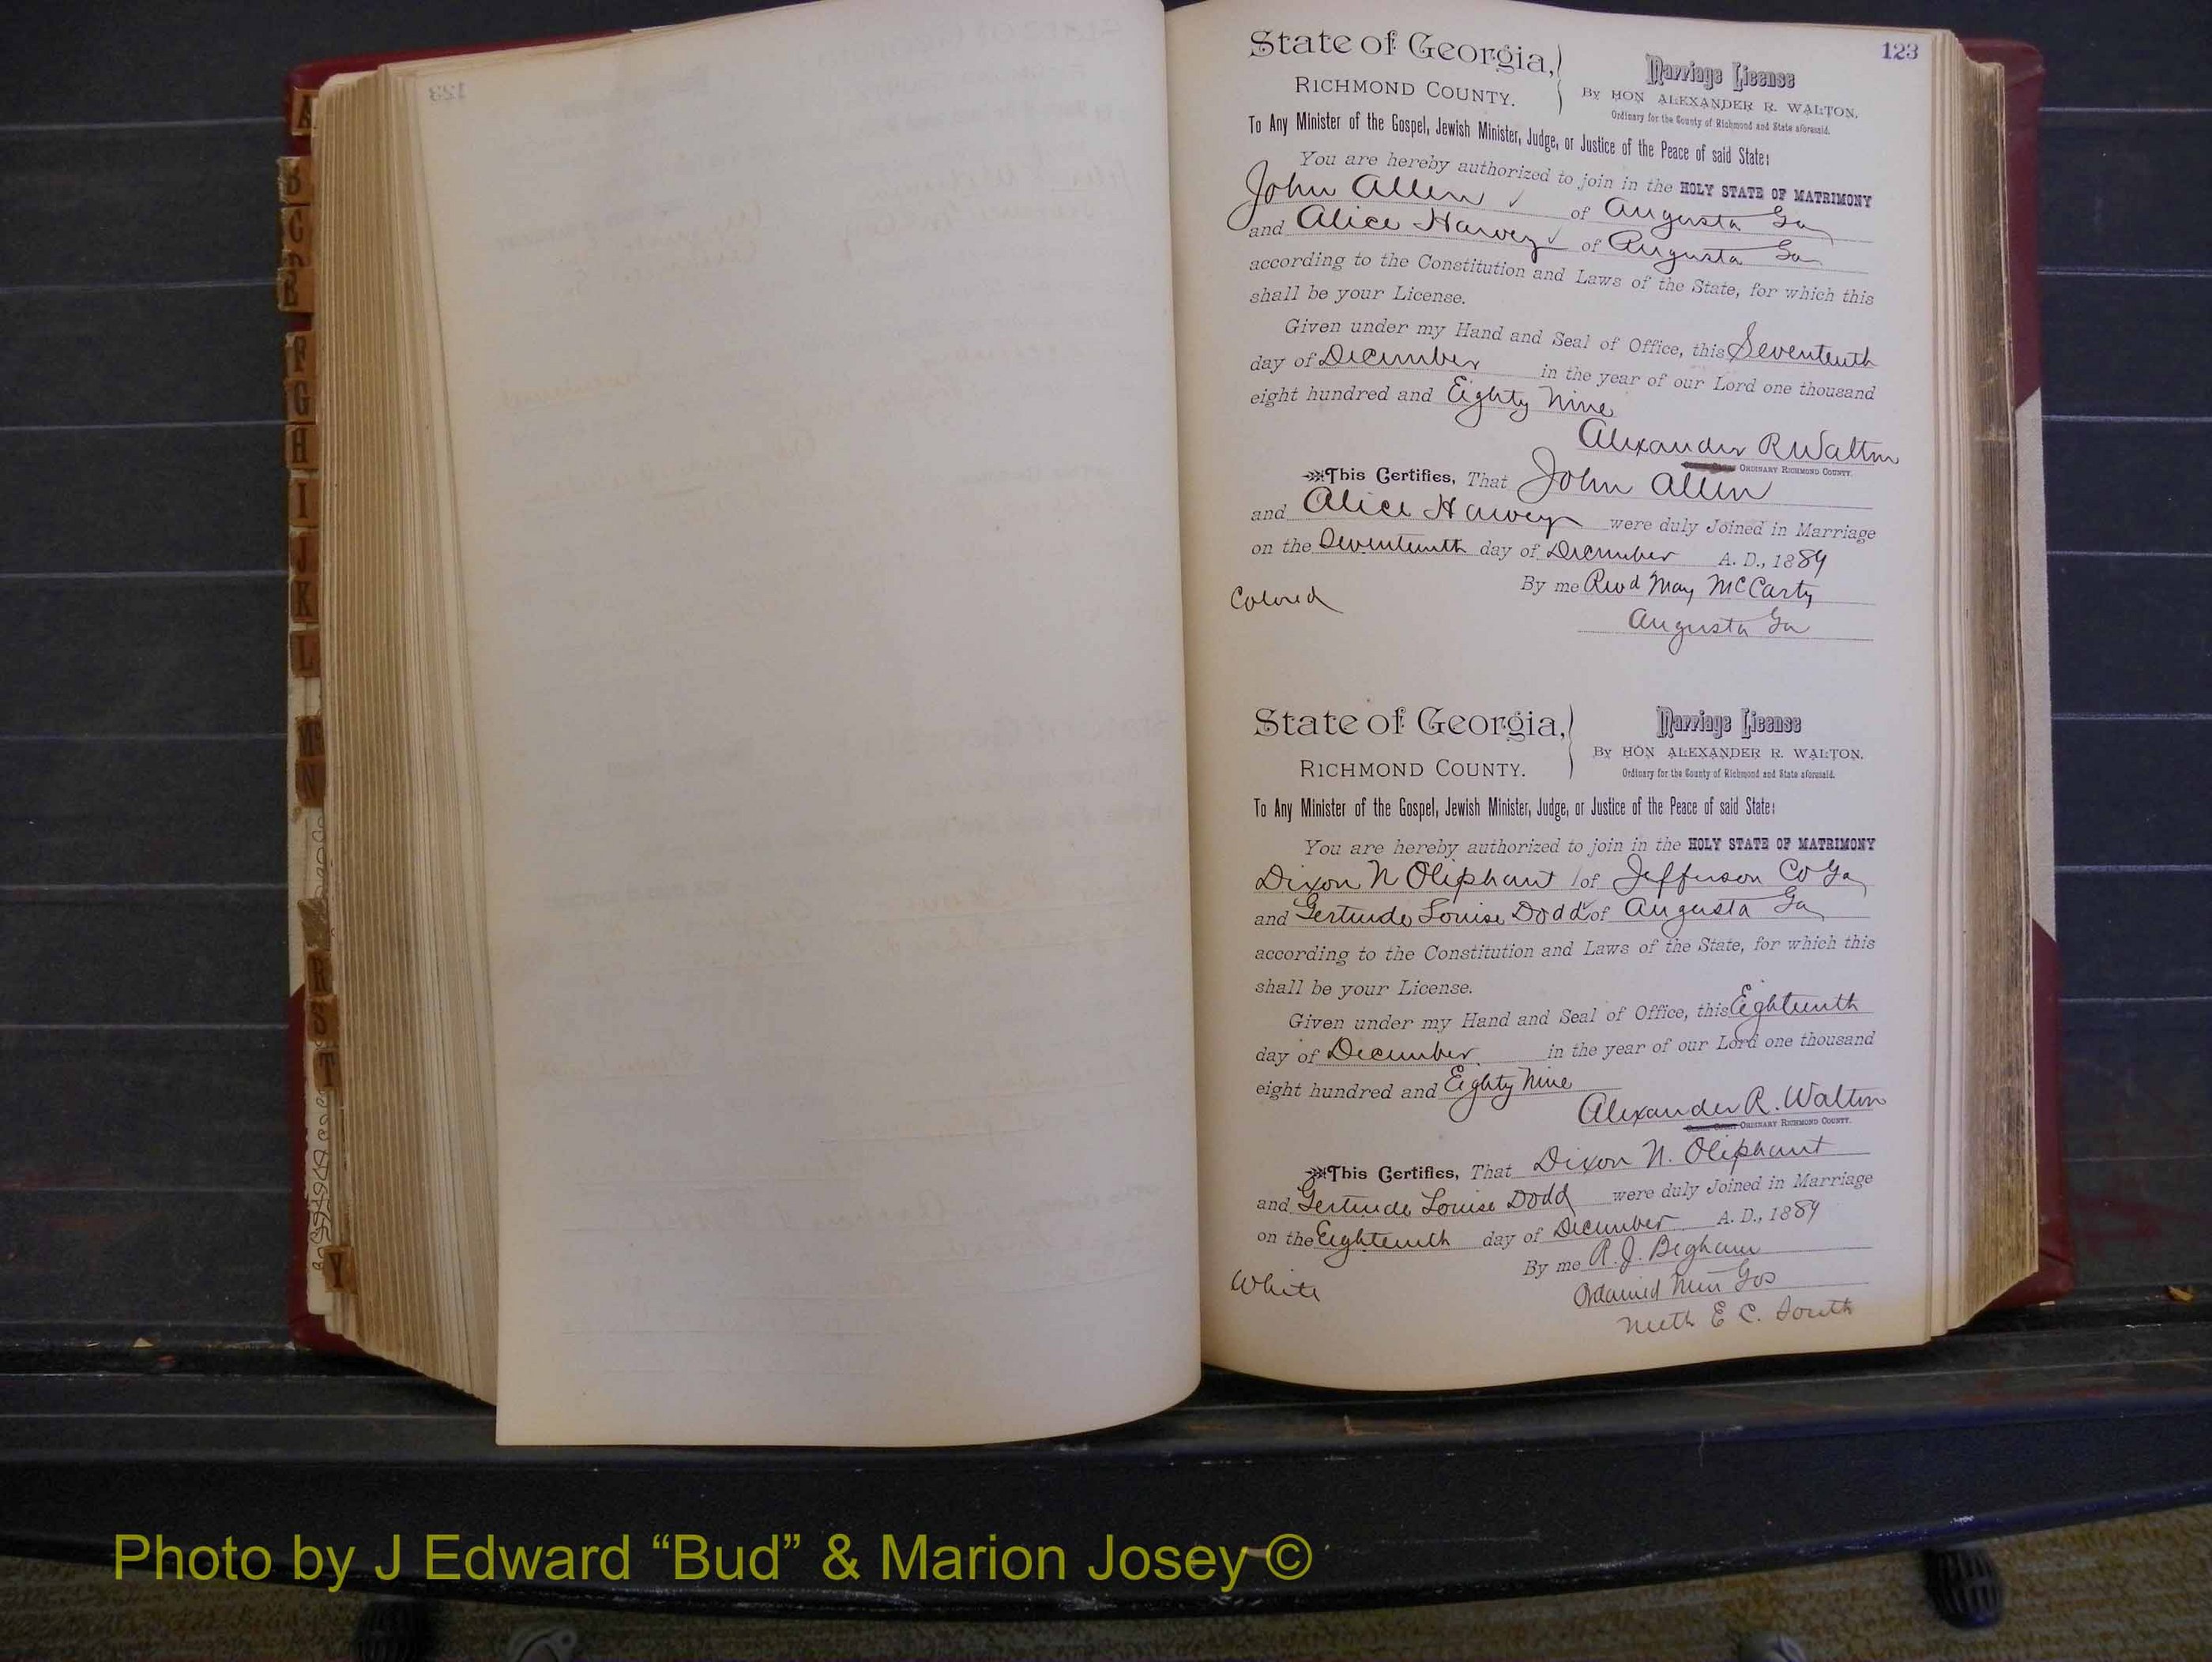 123
State of Georgia,
RICHMOND COUNTY.
Marriage License
By HON ALEXANDER R. WALTON,
Ordinary for the County of Richmond and State aforesaid.
To Any Minister of the Gospel, Jewish Minister, Judge, or Justice of the Peace of said State:
You are hereby authorized to join in the HOLY STATE OF MATRIMONY
John Allen ✓ of Augusta Ga
and Alice Harvey ✓ of Augusta Ga
according to the Constitution and Laws of the State, for which this
shall be your License.
Given under my Hand and Seal of Office, this Seventeenth
day of December in the year of our Lord one thousand
eight hundred and Eighty Nine
Alexander R Walton
ORDINARY RICHMOND COUNTY.
This Certifies, That John Allen
and Alice Harvey were duly Joined in Marriage
on the Seventeenth day of December A. D., 1889
By me Revd May McCarty
Colored
Augusta Ga
State of Georgia,
RICHMOND COUNTY.
Marriage License
By HON ALEXANDER R. WALTON.
Ordinary for the County of Richmond and State aforesaid.
To Any Minister of the Gospel, Jewish Minister, Judge, or Justice of the Peace of said State:
You are hereby authorized to join in the HOLY STATE OF MATRIMONY
Dixon N Oliphant of Jefferson Co Ga
and Gertrude Louise Dodd of Augusta Ga
according to the Constitution and Laws of the State, for which this
shall be your License.
Given under my Hand and Seal of Office, this Eighteenth
day of December in the year of our Lord one thousand
eight hundred and Eighty Nine
Alexander R. Walton
ORDINARY RICHMOND COUNTY.
This Certifies, That Dixon N. Oliphant
and Gertrude Louise Dodd were duly Joined in Marriage
on the Eighteenth day of December A. D., 1889
By me R. J. Bigham
White
Ordained Min Gos
Meth E C. South
A
B
C
F
G
H
I
J
K
L
N
R
S
T
Y
Photo by J Edward “Bud” & Marion Josey ©